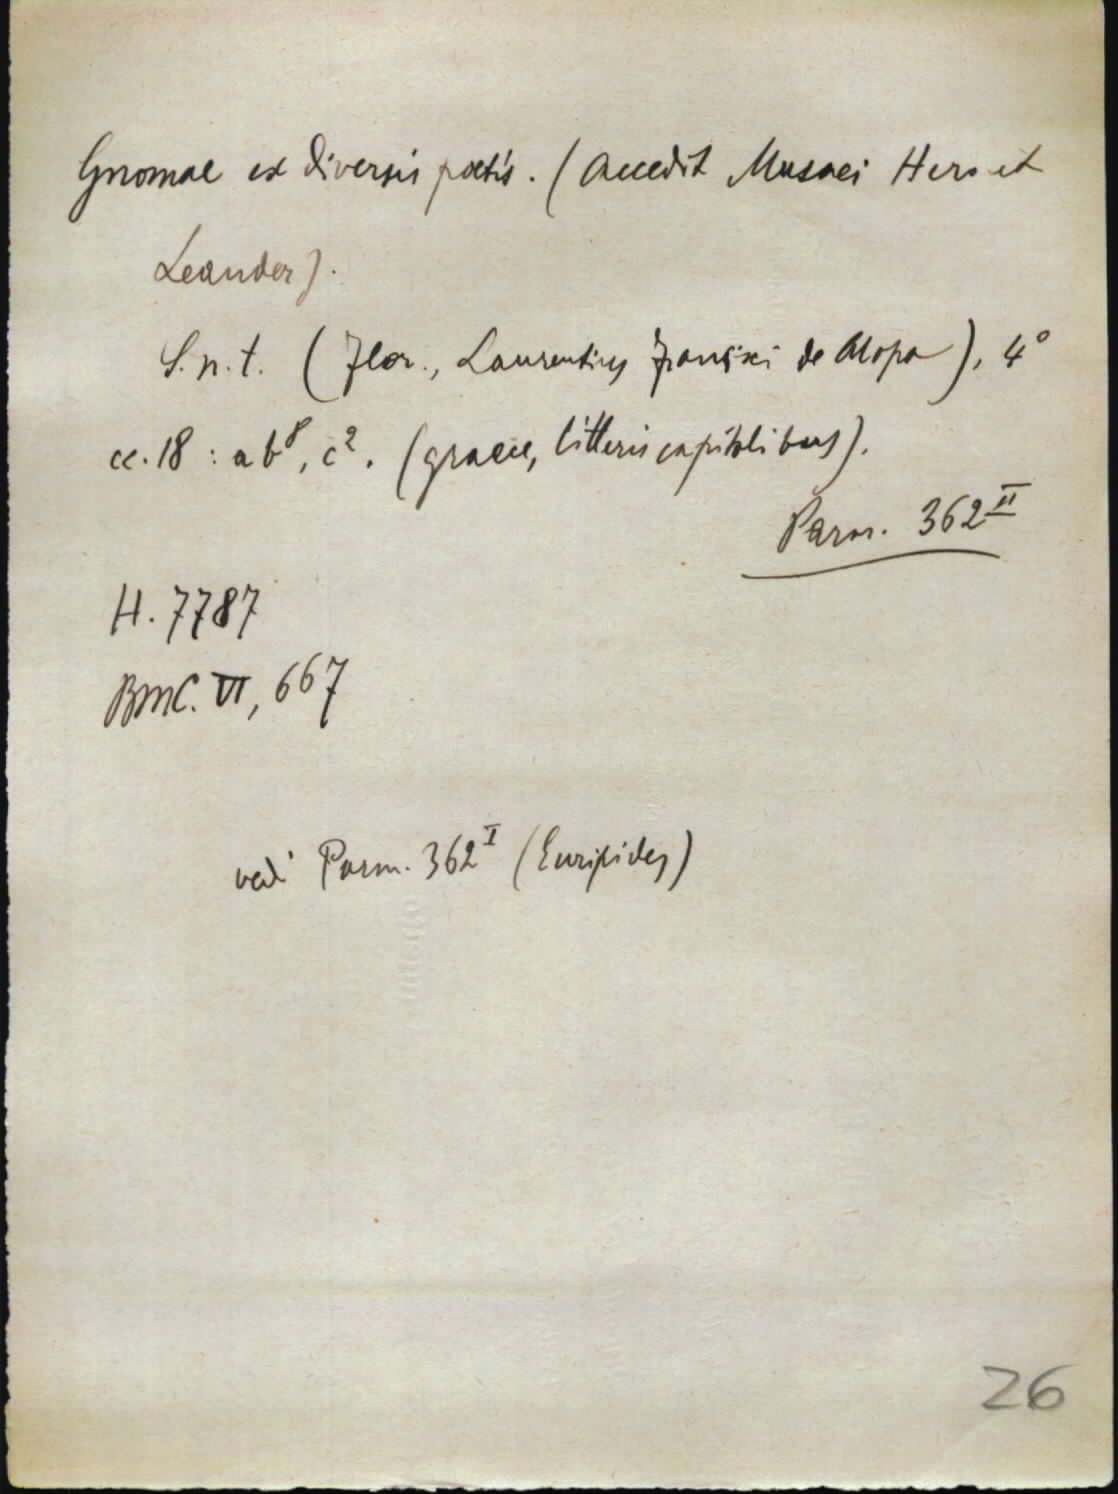 Gnomae ex diversis poetis. (Accedit Musaei Hero et
Leander).
S.n.t. (Flor., Laurentius Francisci de Alopa), 4°
cc. 18 : a b⁸, c². (graece, litteris capitalibus).
Parm. 362ᴵᴵ
H. 7787
BMC. VI, 667
vedi Parm. 362ᴵ (Euripides)
26